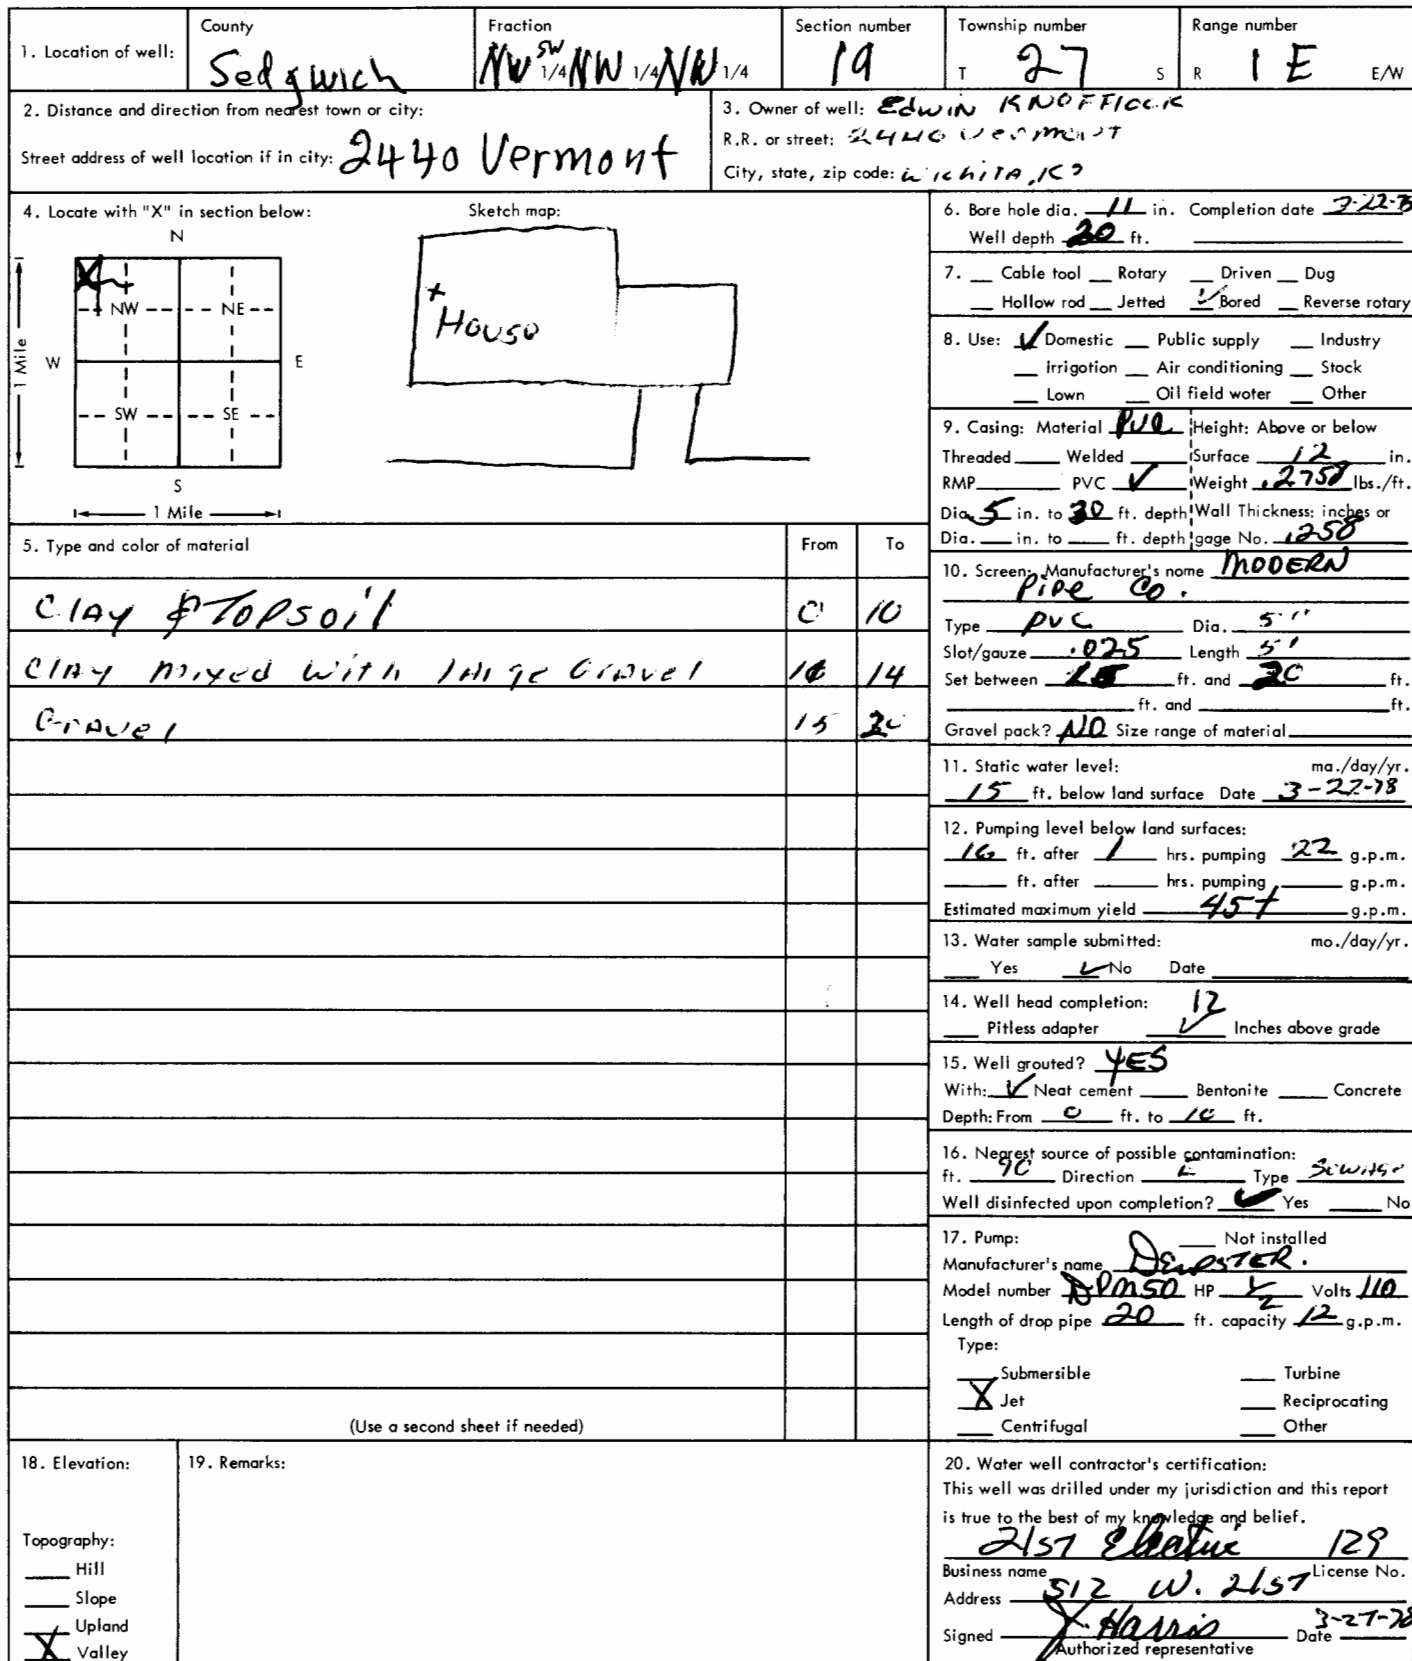 1. Location of well:
County
Sedgwich
Fraction
NW SW 1/4 NW 1/4 NW 1/4
Section number
19
Township number
T 27 S
Range number
R 1 E E/W
2. Distance and direction from nearest town or city:
Street address of well location if in city: 2440 Vermont
3. Owner of well: Edwin KNOFFlock
R.R. or street: 2440 Vermont
City, state, zip code: Wichita, Ks
4. Locate with "X" in section below:
Sketch map:
N
X
NW NE
W E
1 Mile
SW SE
S
1 Mile
+
House
5. Type and color of material From To
Clay & Topsoil 0 10
Clay mixed with large Gravel 10 14
Gravel 15 20
(Use a second sheet if needed)
6. Bore hole dia. 11 in. Completion date 3-22-78
Well depth 20 ft.
7. Cable tool Rotary Driven Dug
Hollow rod Jetted ✓ Bored Reverse rotary
8. Use: ✓ Domestic Public supply Industry
Irrigation Air conditioning Stock
Lown Oil field woter Other
9. Casing: Material PVC Height: Above or below
Threaded Welded Surface 12 in.
RMP PVC ✓ Weight .2758 lbs./ft.
Dia. 5 in. to 20 ft. depth Wall Thickness: inches or
Dia. in. to ft. depth gage No. .258
10. Screen: Manufacturer's name MODERN
Pipe Co.
Type PVC Dia. 5"
Slot/gauze .025 Length 5'
Set between 15 ft. and 20 ft.
ft. and ft.
Gravel pack? NO Size range of material
11. Static water level: ma./day/yr.
15 ft. below land surface Date 3-22-78
12. Pumping level below land surfaces:
16 ft. after 1 hrs. pumping 22 g.p.m.
ft. after hrs. pumping g.p.m.
Estimated maximum yield 45+ g.p.m.
13. Water sample submitted: mo./day/yr.
Yes ✓ No Date
14. Well head completion: 12
Pitless adapter ✓ Inches above grade
15. Well grouted? YES
With: ✓ Neat cement Bentonite Concrete
Depth: From 0 ft. to 10 ft.
16. Nearest source of possible contamination:
ft. 90 Direction E Type Sewage
Well disinfected upon completion? ✓ Yes No
17. Pump: Not installed
Manufacturer's name DEMPSTER.
Model number DPM50 HP 1/2 Volts 110
Length of drop pipe 20 ft. capacity 12 g.p.m.
Type:
Submersible Turbine
X Jet Reciprocating
Centrifugal Other
18. Elevation:
Topography:
Hill
Slope
Upland
X Valley
19. Remarks:
20. Water well contractor's certification:
This well was drilled under my jurisdiction and this report
is true to the best of my knowledge and belief.
21st Electric 129
Business name License No.
Address 512 W. 21st
Signed J. Harris Date 3-27-78
Authorized representative